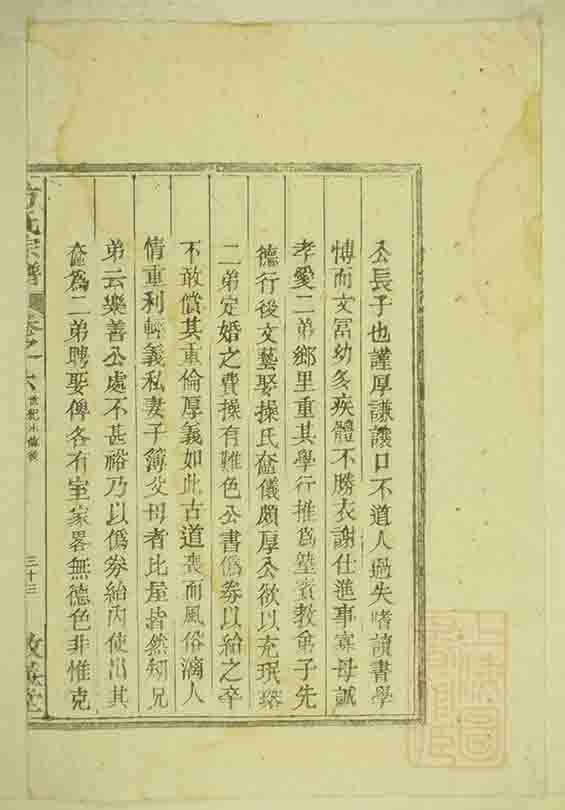 公長子也謹厚謙讓口不道人過失嗜讀書學
博而文富幼多疾體不勝衣謝仕進事寡母誠
孝愛二弟鄉里重其學行推爲塾賓教弟子先
德行後文藝娶操氏奩儀頗厚公欲以充珉瑢
二弟定婚之費操有難色公書僞券以紿之卒
不敢償其重倫厚義如此古道喪而風俗漓人
情重利輕義私妻子薄父母者比屋皆然矧兄
弟云樂善公處不甚裕乃以僞券紿内使出其
奩爲二弟聘娶俾各有室家畧無德色非惟克
方氏宗譜 卷之一 六 世紀小傳 三十三 敦善堂